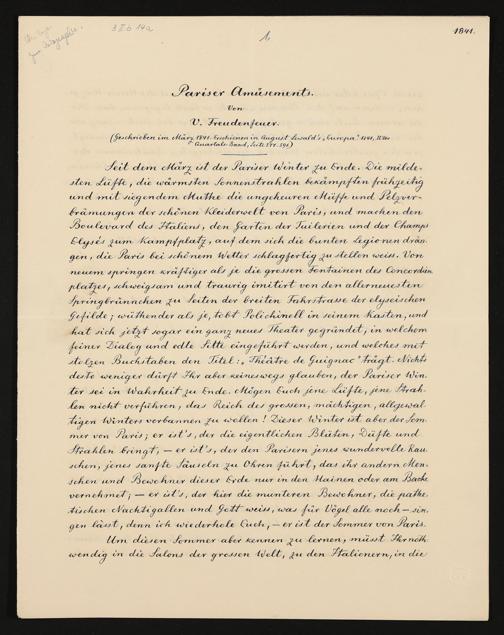 3 II b 14a
1
1841.
Pariser Amüsements.
Von
V. Freudenfeuer.
(Geschrieben im März 1841. Erschienen in August Lewald's „Europa" 1841, IIter
Quartals-Band, Seite
Seit dem März ist der Pariser Winter zu Ende. Die milde-
sten Lüfte, die wärmsten Sonnenstrahlen bekämpften frühzeitig
und mit siegendem Muthe die ungeheuren Müffe und Pelzver-
brämungen der schönen Kleiderwelt von Paris, und machen den
Boulevard des Italiens, den Garten der Tuilerien und der Champs
Elysés zum Kampfplatz, auf dem sich die bunten Legionen drän-
gen, die Paris bei schönem Wetter schlagfertig zu stellen weiss. Von
neuem springen kräftiger als je die grossen Fontainen des Concordien
platzes, schweigsam und traurig imitirt von den allerneuesten
Springbrünnchen zu Seiten der breiten Fahrstrasse der elyseischen
Gefilde; wüthender als je, tobt Polichinell in seinem Kasten, und
hat sich jetzt sogar ein ganz neues Theater gegründet, in welchem
feiner Dialog und edle Sitte eingeführt werden, und welches mit
stolzen Buchstaben den Titel: „Théâtre de Guignac" trägt. Nichts
desto weniger dürft Ihr aber keineswegs glauben, der Pariser Win-
ter sei in Wahrheit zu Ende. Mögen Euch jene Lüfte, jene Strah-
len nicht verführen, das Reich des grossen, mächtigen, allgewal-
tigen Winters verbannen zu wollen! Dieser Winter ist aber der Som-
mer von Paris; er ist's, der die eigentlichen Blüten, Düfte und
Strahlen bringt; – er ist's, der den Parisern jenes wundervolle Rau-
schen, jenes sanfte Säuseln zu Ohren führt, das ihr andern Men-
schen und Bewohner dieser Erde nur in den Hainen oder am Bache
vernehmet; – er ist's, der hier die munteren Bewohner, die pathe-
tischen Nachtigallen und Gott weiss, was für Vögel alle noch – sin-
gen lässt, denn ich wiederhole Euch, – er ist der Sommer von Paris.
Um diesen Sommer aber kennen zu lernen, müsst Ihr noth-
wendig in die Salons der grossen Welt, zu den Italienern, in die